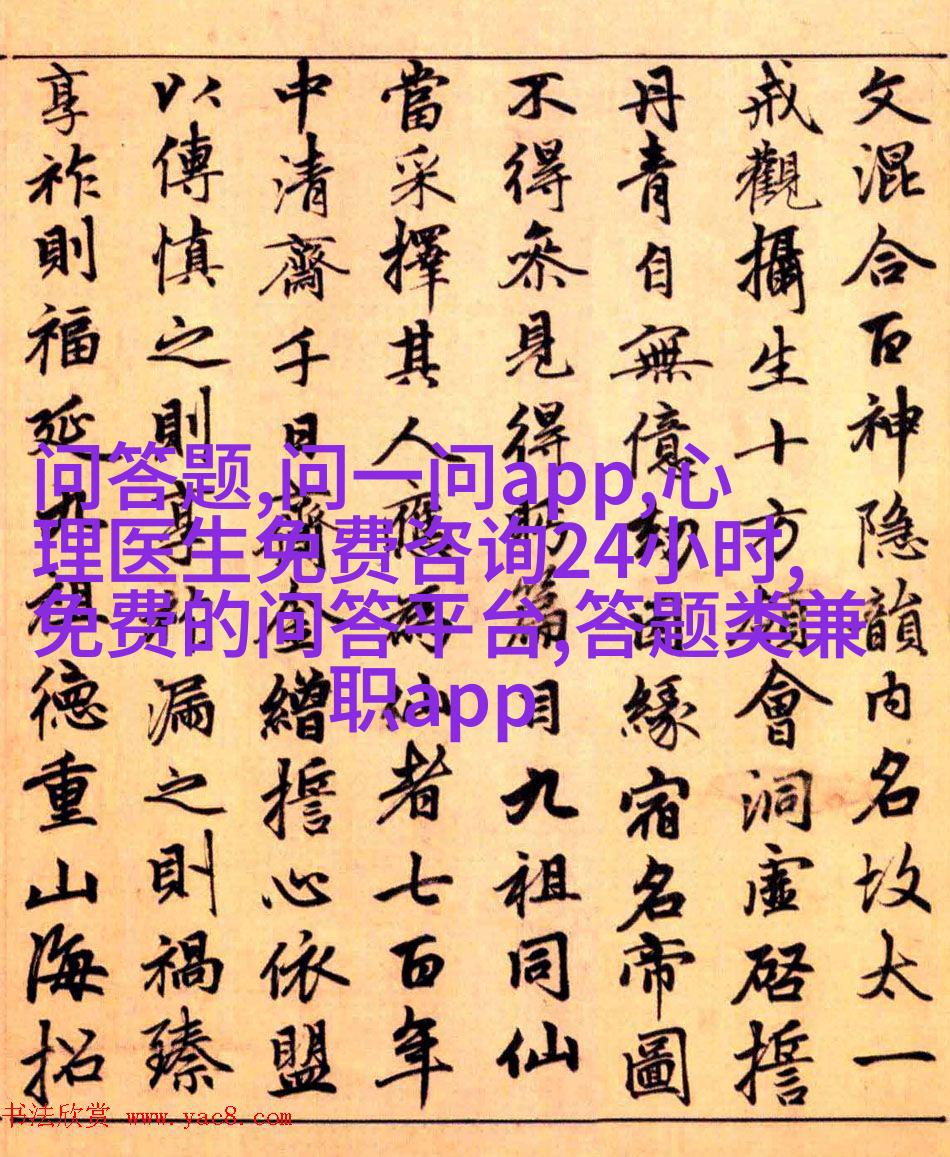 文混合百神隐韻内名故太一
戒觀攝生十方 會洞虚啓誓
丹青自無億劫 緣宿名帝圖
不得叅見得 篇目九祖同仙
當采擇其人應 仙者七百年
中清齋千日齎金繒誓心依盟
以傳慎之則享祚漏之則禍臻
享祚則福延九祖德重山海招
问答题,问一问app,心
理医生免费咨询24小时,
免费的问答平台,答题类兼
职app
书法欣赏 www.yac8.com